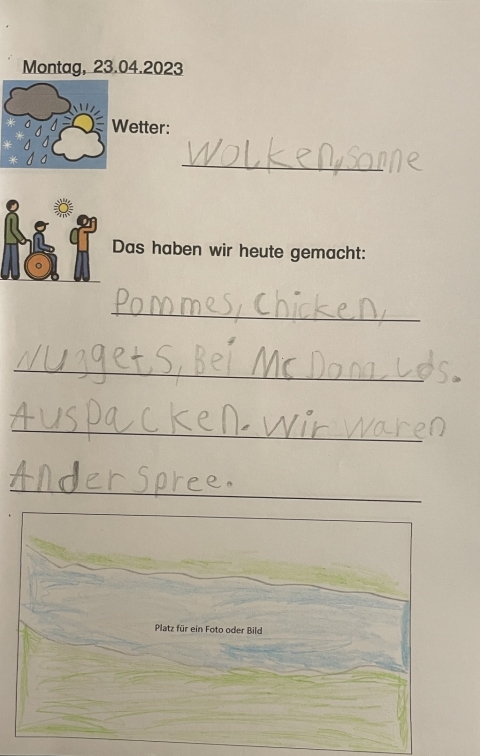 Montag, 23.04.2023
Wetter:
Wolken, sonne
Das haben wir heute gemacht:
Pommes, Chicken,
Nuggets, Bei Mc Donalds.
Auspacken. Wir waren
Ander Spree.
Platz für ein Foto oder Bild